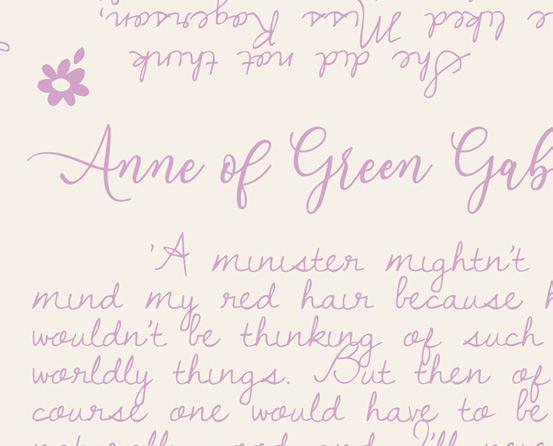 e liked Miss Rogerson,
She did not think
Anne of Green Gab
'A minister mightn't
mind my red hair because h
wouldn't be thinking of such
worldly things. But then of
course one would have to be